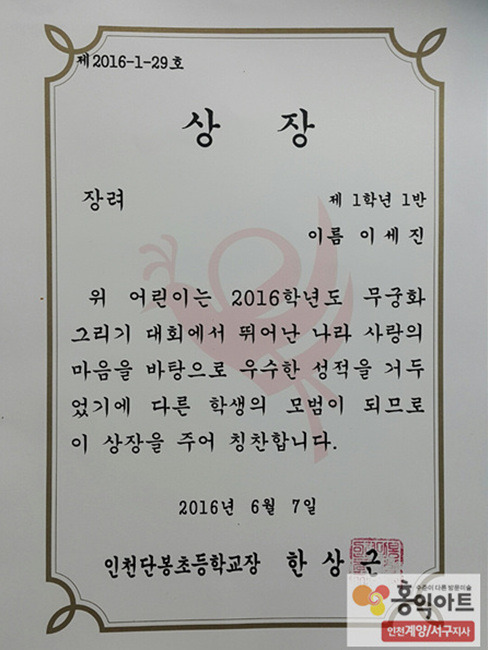 제2016-1-29호
상 장
장려
제 1학년 1반
이름 이세진
위 어린이는 2016학년도 무궁화
그리기 대회에서 뛰어난 나라 사랑의
마음을 바탕으로 우수한 성적을 거두
었기에 다른 학생의 모범이 되므로
이 상장을 주어 칭찬합니다.
2016년 6월 7일
인천단봉초등학교장 한 상 근
수준이 다른 방문미술
홍익아트
인천계양/서구지사